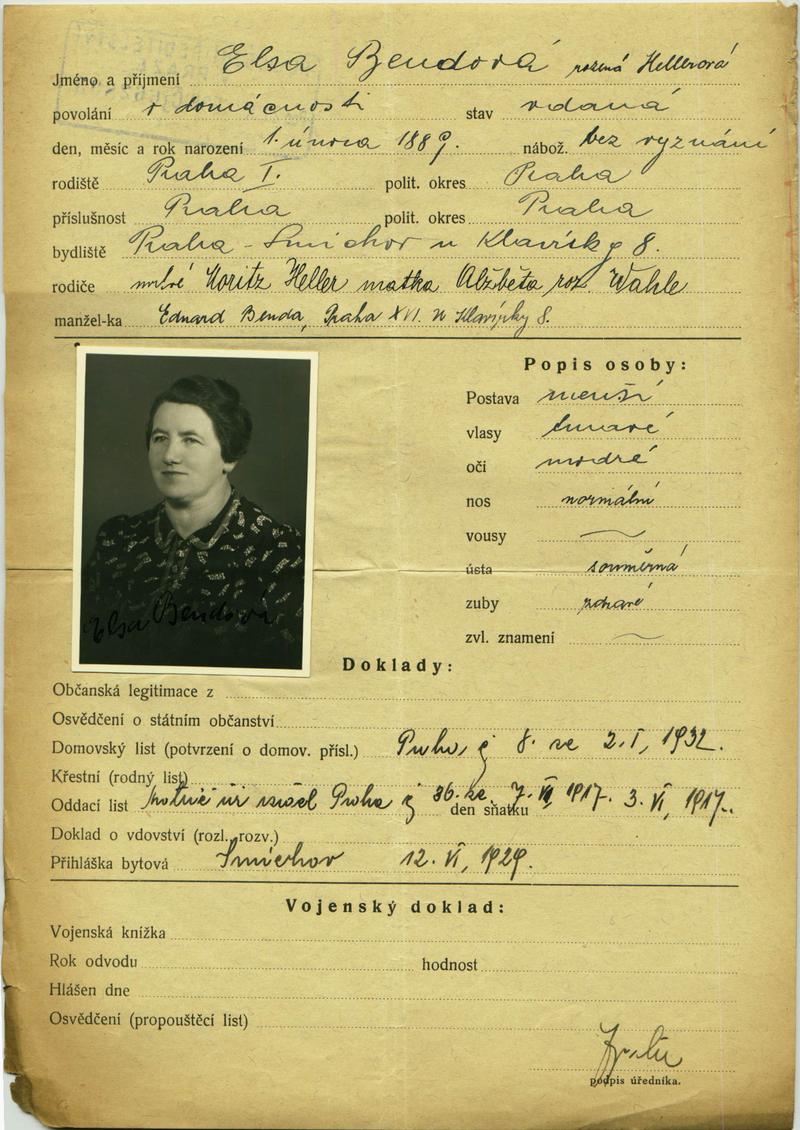 Jméno a příjmení Elsa Bendová rozená Hellerová
povolání v domácnosti stav vdaná
den, měsíc a rok narození 1. února 1889. nábož. bez vyznání
rodiště Praha I. polit. okres Praha
příslušnost Praha polit. okres Praha
bydliště Praha - Smíchov u Klavírky 8.
rodiče Moritz Heller matka Alžběta roz. Wahle
manžel-ka Eduard Benda, Praha XVI. U Klavírky 8.
Popis osoby:
Postava menší
vlasy tmavé
oči modré
nos normální
vousy
ústa souměrná
zuby zdravé
zvl. znamení
Elsa Bendová
Doklady:
Občanská legitimace z
Osvědčení o státním občanství
Domovský list (potvrzení o domov. přísl.) Praha, č 8. ze 2. I, 1932.
Křestní (rodný list)
Oddací list Praha č 36. ze 7. 1917. den sňatku 3. VI, 1917.
Doklad o vdovství (rozl. rozv.)
Přihláška bytová Smíchov 12. VI, 1929.
Vojenský doklad:
Vojenská knížka
Rok odvodu hodnost
Hlášen dne
Osvědčení (propouštěcí list)
podpis úředníka.